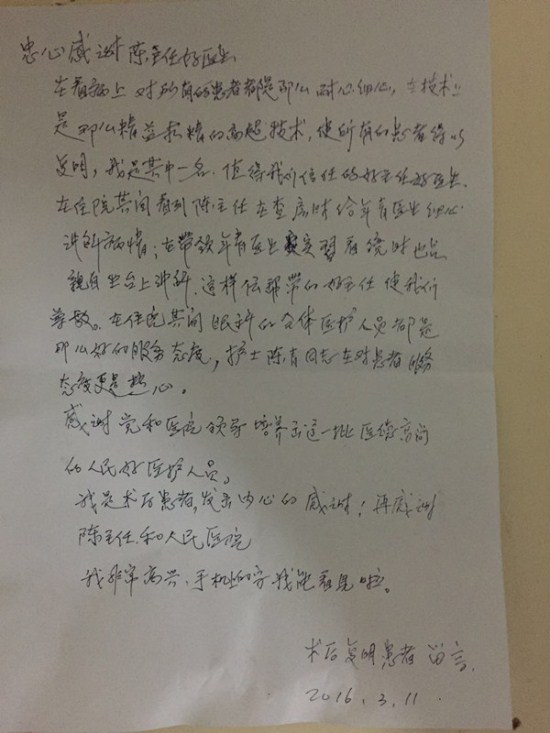 忠心感谢陈主任好医生
在看病上对所有的患者都是那么耐心细心，在技术上
是那么精益求精的高超技术，使所有的患者得以
复明，我是其中一名，值得我们信任的好主任好医生
在住院其间看到陈主任在查房时给年青医生细心
讲解病情；在带领年青医生实习看镜时也是
亲自坐台上讲解，这样传帮带的好主任使我们
尊敬。在住院其间眼科的全体医护人员都是
那么好的服务态度，护士陈青同志在对患者服务
态度更是热心。
感谢党和医院领导培养出这一批医德高尚
的人民好医护人员。
我是术后患者，发出内心的感谢！再感谢
陈主任和人民医院
我非常高兴，手机上的字我能看见啦。
术后复明患者留言
2016.3.11.